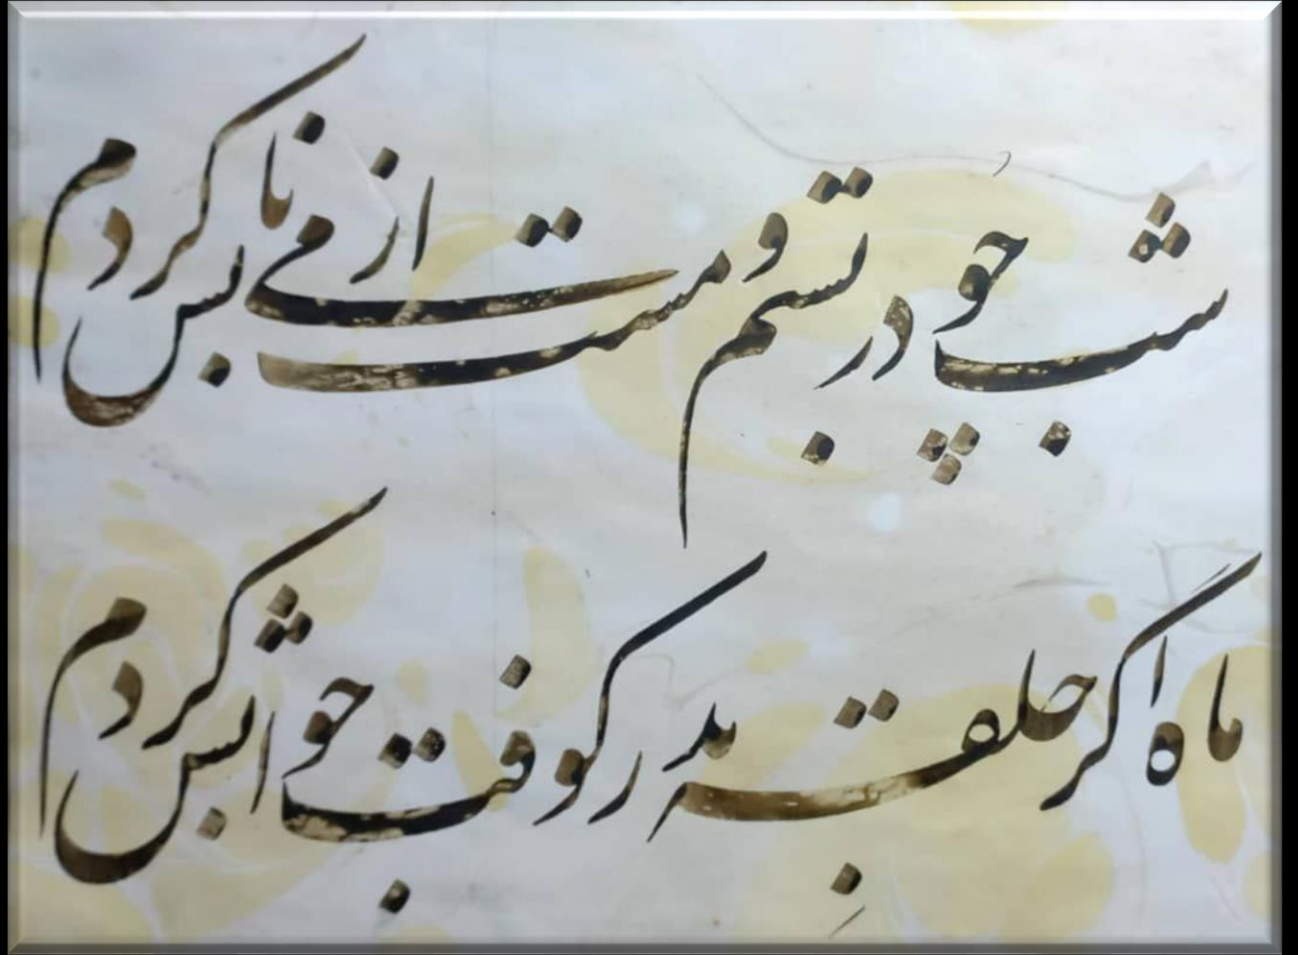 شب چو در بستم و مست از می نابش کردم
ماه اگر حلقه بدر کوفت جوابش کردم